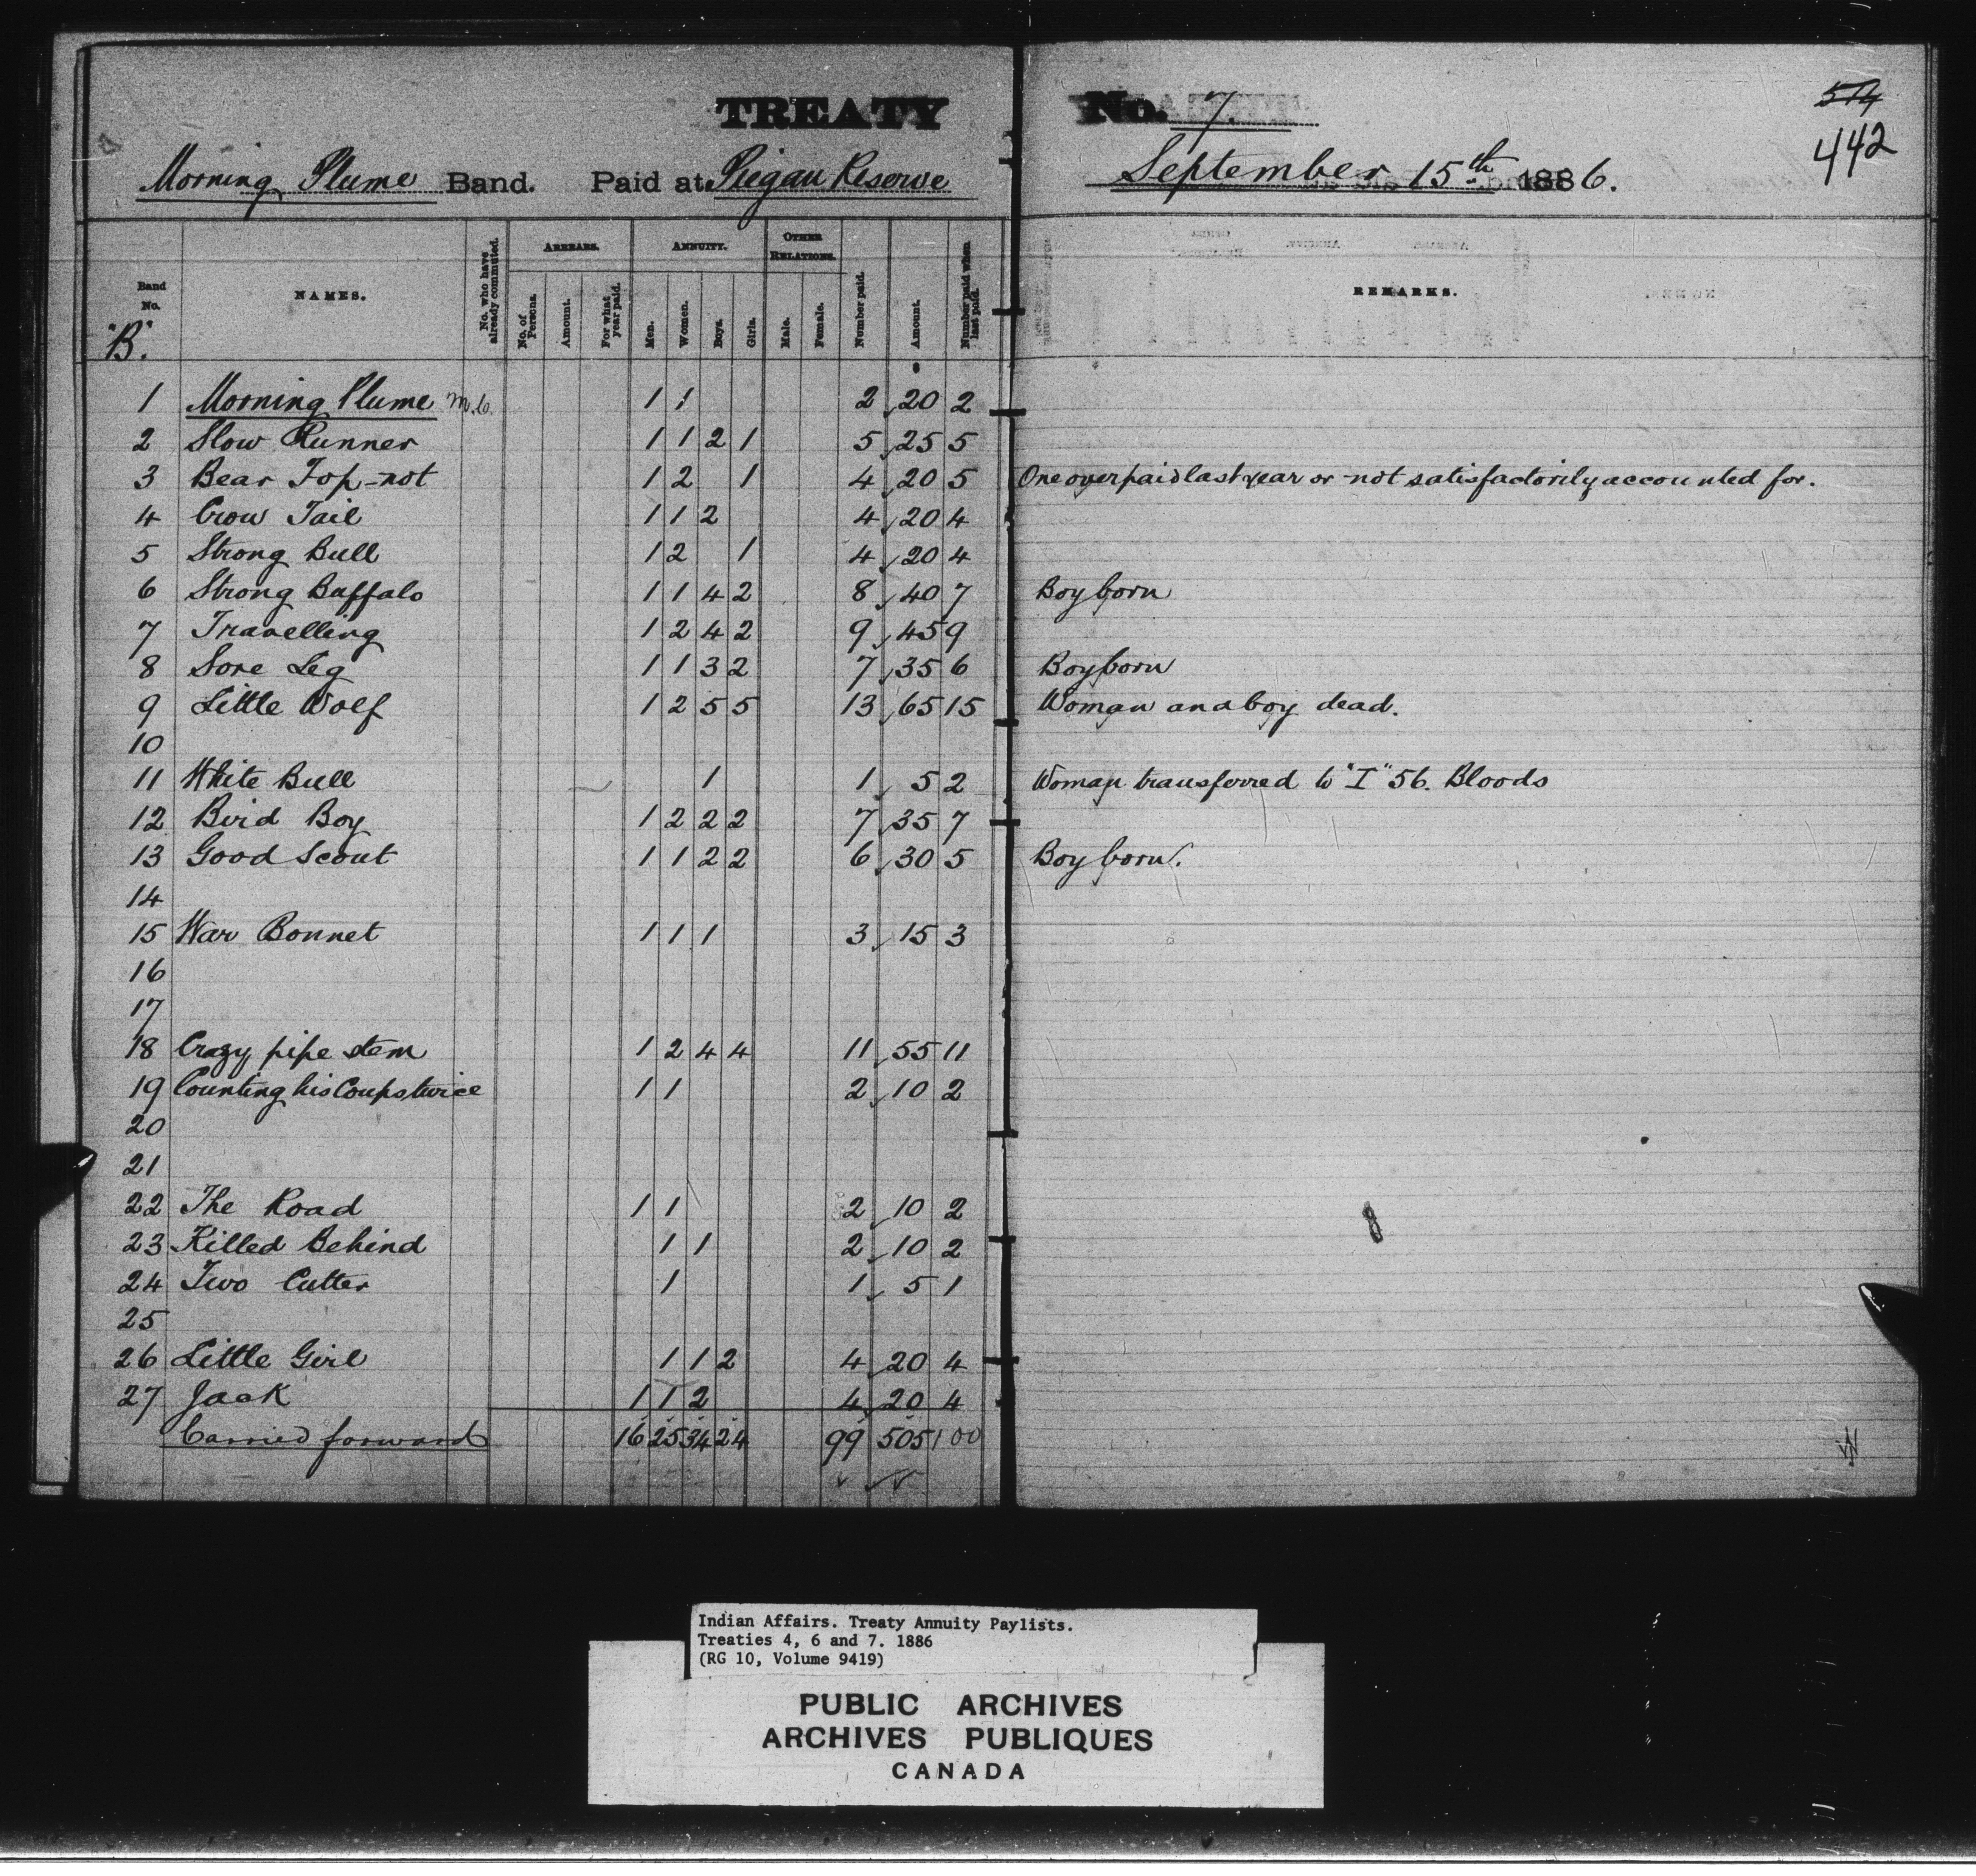 TREATY No. 7.
574
442
Morning Plume Band. Paid at Piegan Reserve September 15th 1886.
Band No. NAMES. No. who have already commuted. ARREARS. ANNUITY. OTHER RELATIONS. Number paid. Amount. Number paid when last paid. REMARKS.
No. of Persons. Amount. For what year paid. Men. Women. Boys. Girls. Male. Female.
"B".
1 Morning Plume 1 1 2 20 2
2 Slow Runner 1 1 2 1 5 25 5
3 Bear Top-not 1 2 1 4 20 5 One overpaid last year or not satisfactorily accounted for.
4 Crow Tail 1 1 2 4 20 4
5 Strong Bull 1 2 1 4 20 4
6 Strong Buffalo 1 1 4 2 8 40 7 Boy born
7 Travelling 1 2 4 2 9 45 9
8 Sore Leg 1 1 3 2 7 35 6 Boy born
9 Little Wolf 1 2 5 5 13 65 15 Woman and a boy dead.
10
11 White Bull 1 1 5 2 Woman transferred to "I" 56. Bloods
12 Bird Boy 1 2 2 2 7 35 7
13 Good Scout 1 1 2 2 6 30 5 Boy born.
14
15 War Bonnet 1 1 1 3 15 3
16
17
18 Crazy pipe stem 1 2 4 4 11 55 11
19 Counting his Coups twice 1 1 2 10 2
20
21
22 The Road 1 1 2 10 2
23 Killed Behind 1 1 2 10 2
24 Two Cutter 1 1 5 1
25
26 Little Girl 1 1 2 4 20 4
27 Jack 1 1 2 4 20 4
Carried forward 16 25 34 24 99 505 100
Indian Affairs. Treaty Annuity Paylists.
Treaties 4, 6 and 7. 1886
(RG 10, Volume 9419)
PUBLIC ARCHIVES
ARCHIVES PUBLIQUES
CANADA